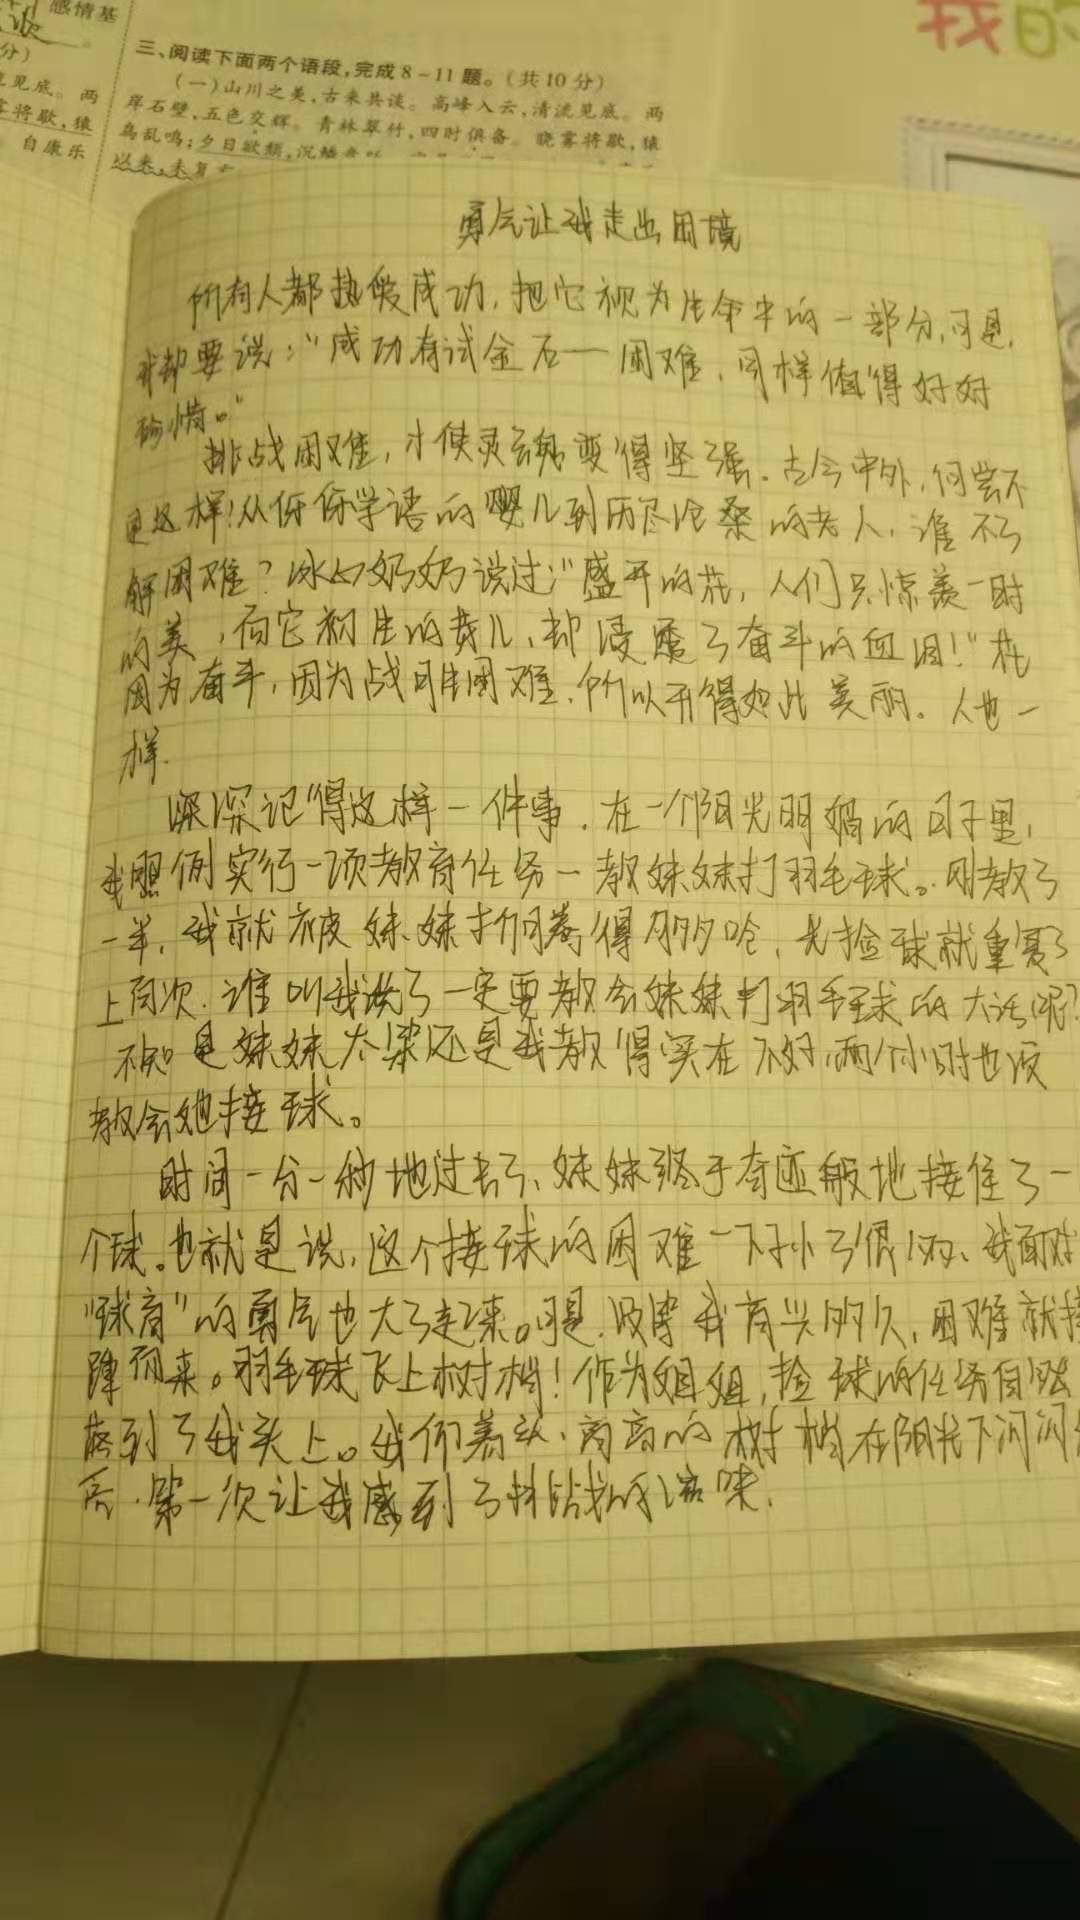 感情基
分)
见底。两
将歇,猿
自康乐
我的
三、阅读下面两个语段,完成8-11题。(共10分)
(一)山川之美,古来共谈。高峰入云,清流见底。两
岸石壁,五色交辉。青林翠竹,四时俱备。晓雾将歇,猿
鸟乱鸣;夕日欲颓,沉鳞
以来,未复
勇气让我走出困境
所有人都热爱成功,把它视为生命中的一部分,可是,
我却要说:“成功有试金石——困难,同样值得好好
珍惜。”
挑战困难,才使灵魂变得坚强。古今中外,何尝不
是这样!从伢伢学语的婴儿到历尽沧桑的老人,谁不了
解困难?冰心奶奶说过:“盛开的花,人们只惊羡一时
的美,而它初生的芽儿,却浸透了奋斗的血泪!”花
因为奋斗,因为战胜困难,所以开得如此美丽。人也一
样.
深深记得这样一件事.在一个阳光明媚的日子里,
我照例实行一项教育任务—教妹妹打羽毛球。刚教了
一半,我就被妹妹折腾得够呛,光捡球就重复了
上百次.谁叫我说了一定要教会妹妹打羽毛球的大话呢?
不知是妹妹太笨还是我教得实在不好,两个小时也没
教会她接球。
时间一分一秒地过去了,妹妹终于奇迹般地接住了一
个球。也就是说,这个接球的困难一下子小了很多、我面对
“球盲”的勇气也大了起来。可是,没等我高兴多久,困难就接
踵而来。羽毛球飞上树梢!作为姐姐,捡球的任务自然
落到了我头上。我仰着头,高高的树梢在阳光下闪闪
第一次让我感到了挑战的滋味.